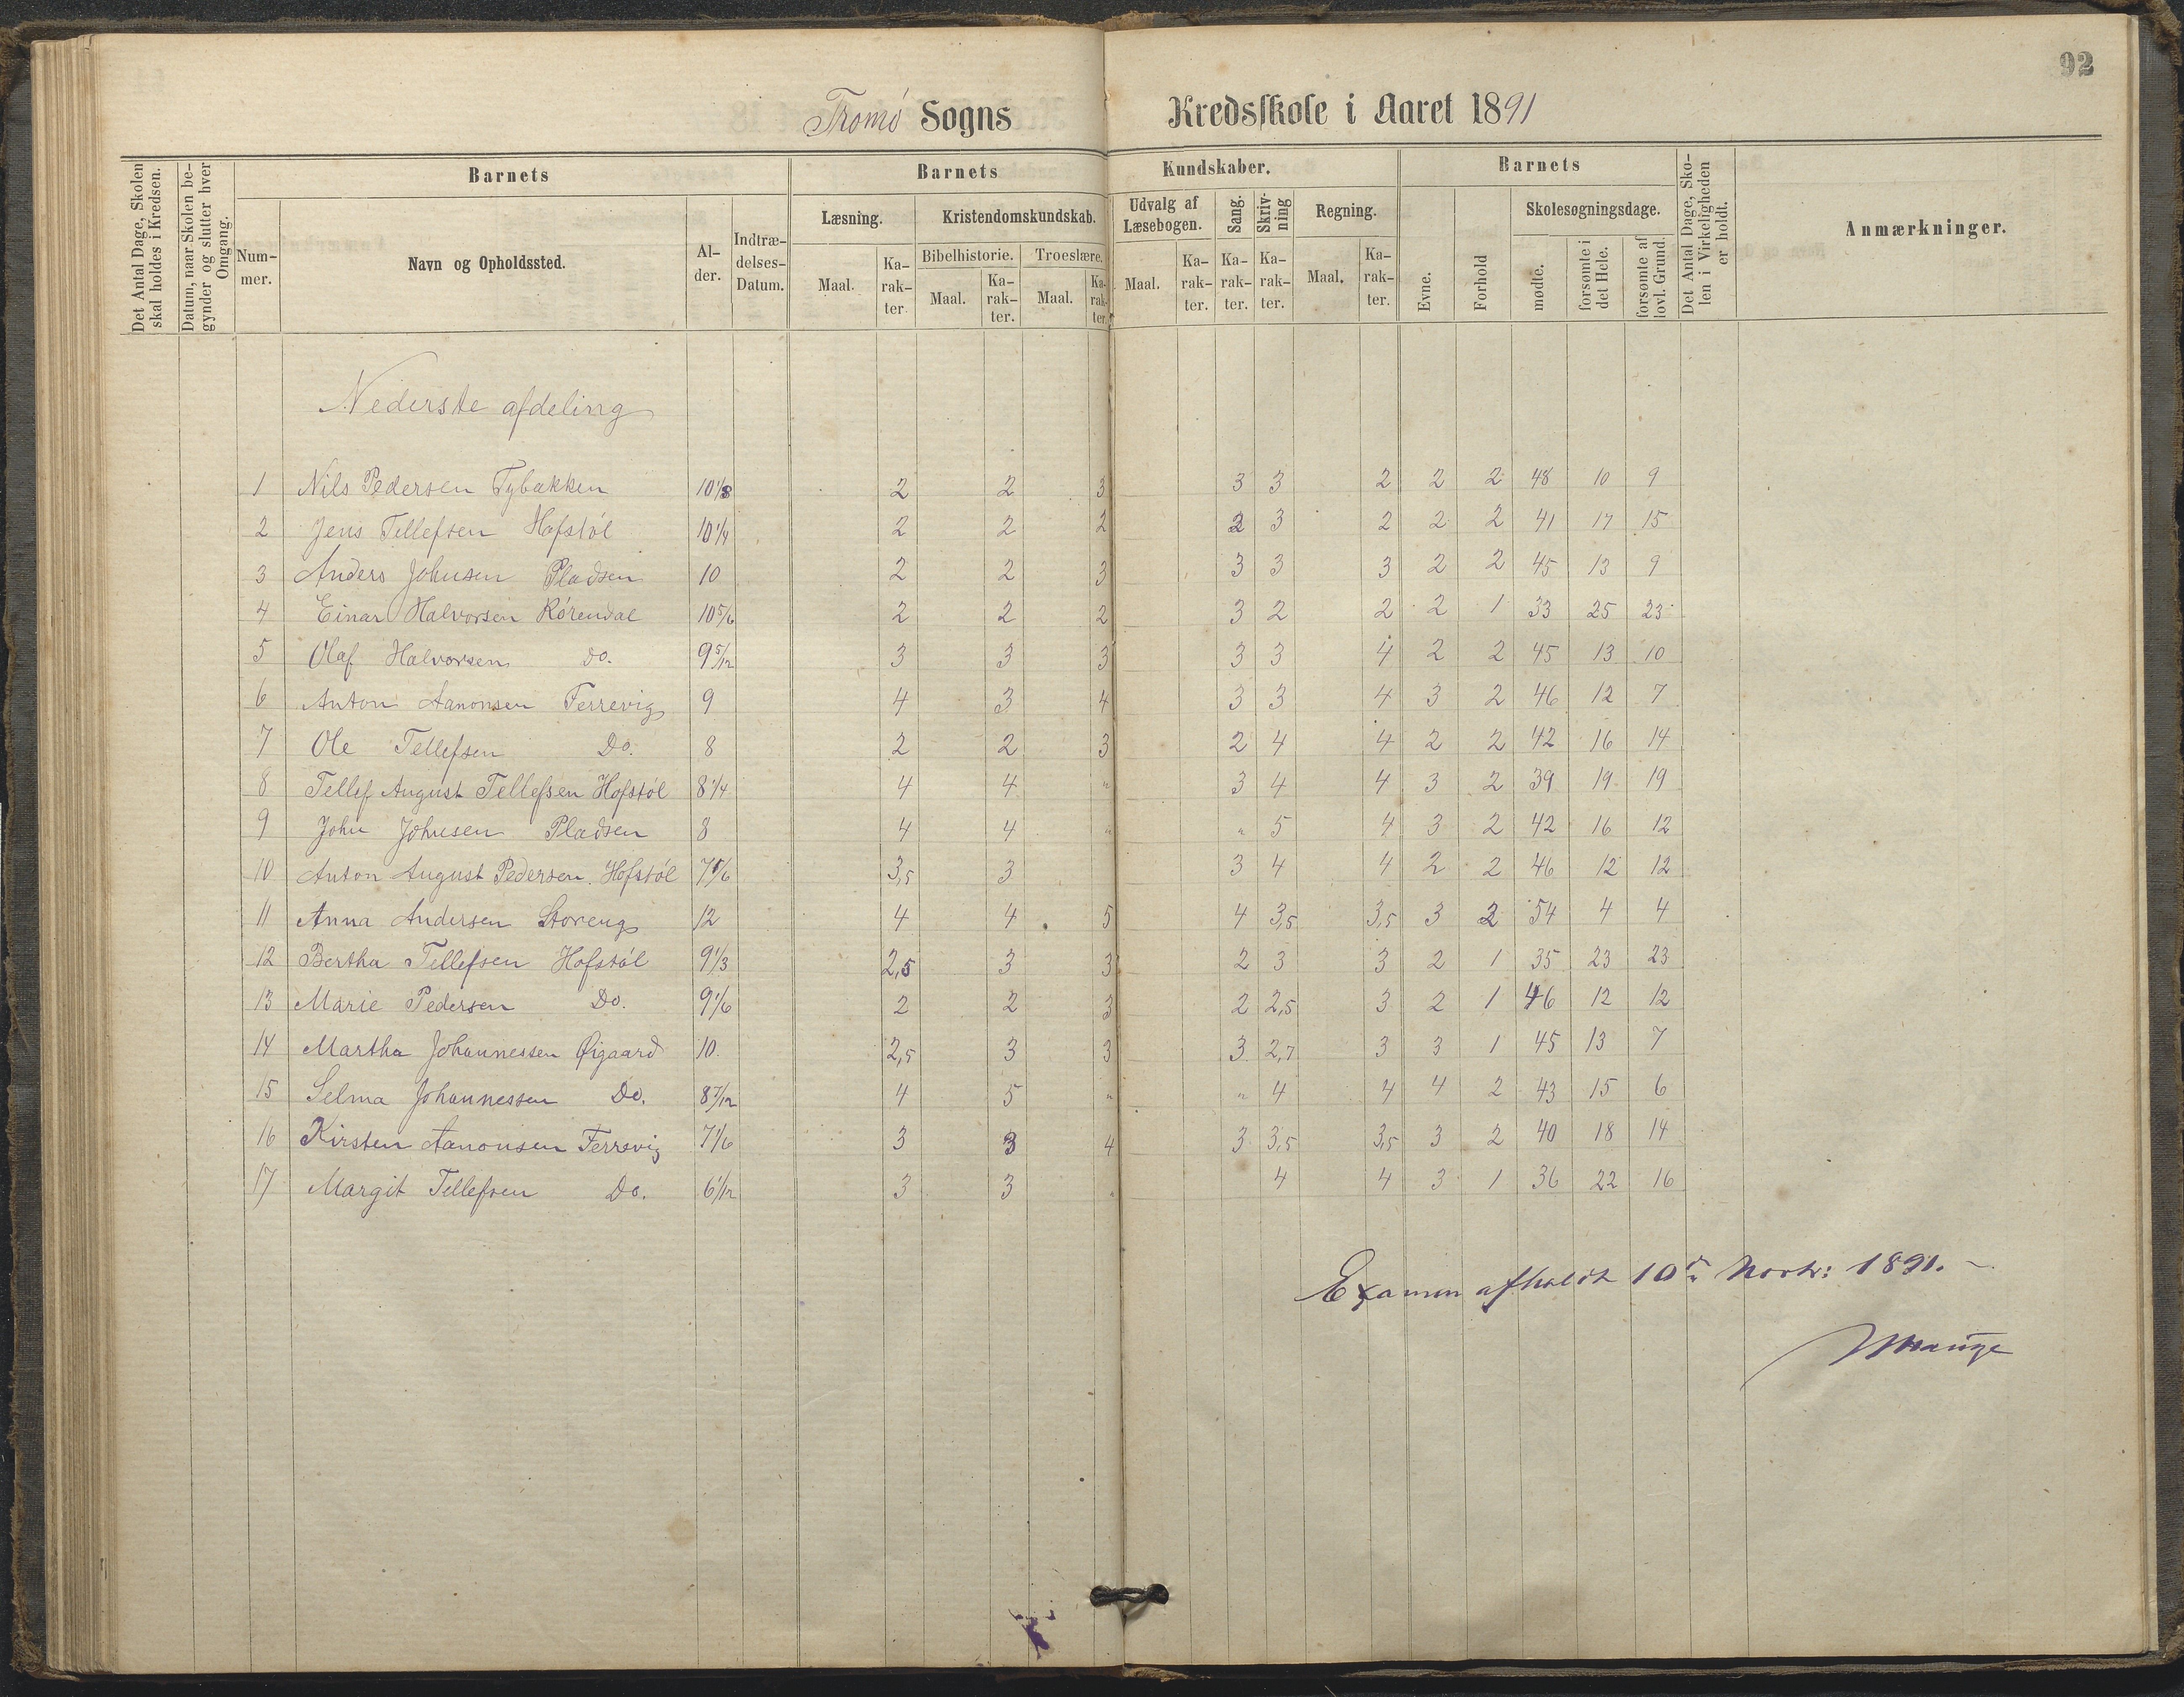 92
Tromö Sogns Kredsskole i Aaret 1891
Det Antal Dage, Skolen skal holdes i Kredsen.
Datum, naar Skolen begynder og slutter hver Omgang.
Barnets
Nummer.
Navn og Opholdssted.
Alder.
Indtrædelses-Datum.
Barnets Kundskaber.
Læsning. Maal. Karakter
Kristendomskundskab.
Bibelhistorie. Maal. Karakter.
Troeslære. Maal. Karakter.
Udvalg af Læsebogen. Maal. Karakter.
Sang. Karakter.
Skrivning Karakter.
Regning. Maal. Karakter.
Barnets
Evne.
Forhold
Skolesøgningsdage.
mødte.
forsømte i det Hele.
forsømte af lovl. Grund.
Det Antal Dage, Skolen i Virkeligheden er holdt.
Anmærkninger.
Nederste afdeling
1 Nils Pedersen Tybakken 10 1/8 2 2 3 3 3 2 2 2 48 10 9
2 Jens Tellefsen Hofstöl 10 1/4 2 2 2 2 3 2 2 2 41 17 15
3 Anders Johnsen Pladsen 10 2 2 3 3 3 3 2 2 45 13 9
4 Einar Halvorsen Rörendal 10 5/6 2 2 2 3 2 2 2 1 33 25 23
5 Olaf Halvorsen do. 9 5/12 3 3 3 3 3 4 2 2 45 13 10
6 Anton Aanonsen Ferrevig 9 4 3 4 3 3 4 3 2 46 12 7
7 Ole Tellefsen Do. 8 2 2 3 2 4 4 2 2 42 16 14
8 Tellef August Tellefsen Hofstöl 8 1/4 4 4 " 3 4 4 3 2 39 19 19
9 John Johnsen Pladsen 8 4 4 " " 5 4 3 2 42 16 12
10 Anton August Pedersen. Hofstöl 7 5/6 3,5 3 3 4 4 2 2 46 12 12
11 Anna Andersen Storeng 12 4 4 5 4 3,5 3,5 3 2 54 4 4
12 Bertha Tellefsen Hofstöl 9 1/3 2,5 3 3 2 3 3 2 1 35 23 23
13 Marie Pedersen Do. 9 1/6 2 2 3 2 2,5 3 2 1 46 12 12
14 Martha Johannessen Øigaard 10. 2,5 3 3 3 2,7 3 3 1 45 13 7
15 Selma Johannessen Do. 8 7/12 4 5 " " 4 4 4 2 43 15 6
16 Kirsten Aanonsen Ferrevig 7 1/6 3 3 4 3 3,5 3,5 3 2 40 18 14
17 Margit Tellefsen Do. 6 1/12 3 3 " 4 4 3 1 36 22 16
Examen afholdt 10 Novbr: 1891. –